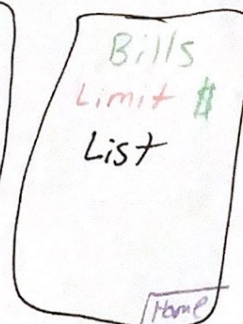 Bills
Limit $
List
Home